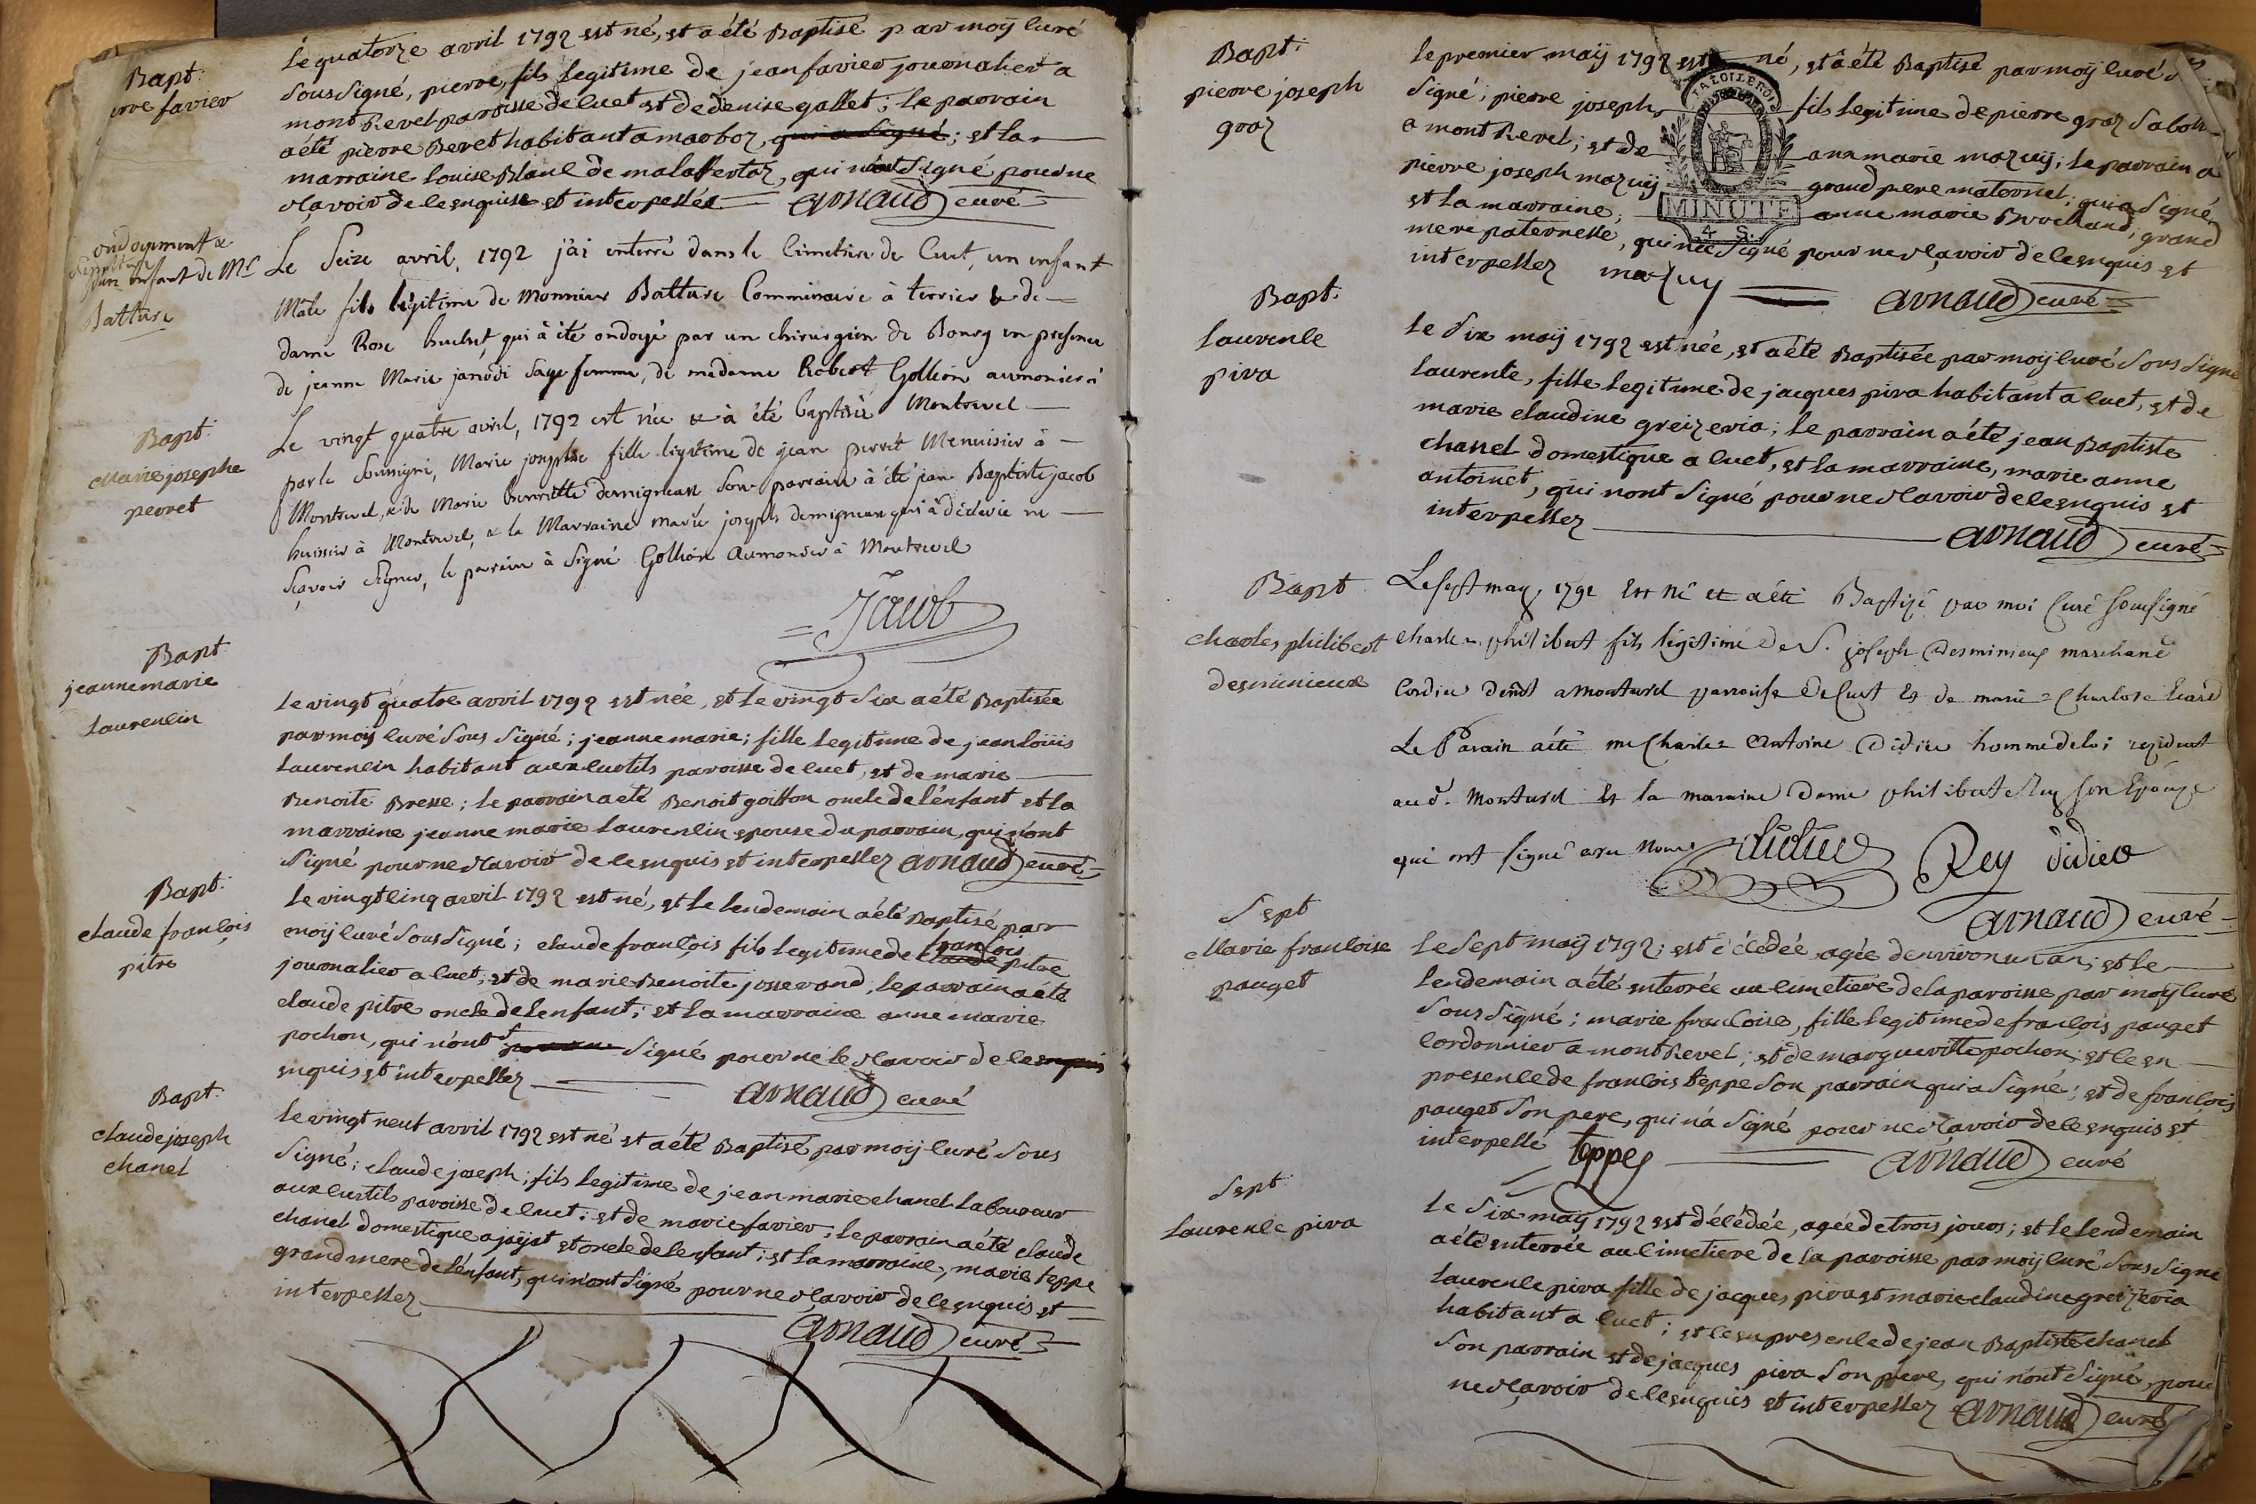 Bapt:
pierre favier
le quatorze avril 1792 est né, et a été Baptisé par moÿ curé
sous signé, pierre, fils legitime de jean favier journalier a
montRevel paroisse de cuet et de denise gallet; le parrain
a été pierre Beret habitant a marboz, qui a signé; et la
marraine louise Blanc de malafertaz, qui n'ont signé pour ne
sçavoir de ce enquise et interpellée arnaud curé
ondoyement &
sepulture
d'un enfant de Mr
Batture
Le Seize avril, 1792 j'ai enterré dans le Cimetiere de Cuet, un enfant
Mâle fils légitime de Monnier Batture Commissaire à terrier & de
dame Rose huchet, qui à été ondoyé par un chirurgien de Bourg en presence
de jeanne Marie janodi Sage femme, de madame Robert Gollion aumonier à
Montrevel
Bapt:
Marie josephe
perret
Le vingt quatre avril, 1792 est née & à été baptisée
par le soussigné, Marie josephe fille légitime de jean perret Menuisier à
Montrevel, & de Marie henriette demigneux son parrain à été jean Baptiste jacob
huissier à Montrevel, & la Marraine marie joseph demigneux qui à déclaré ne
sçavoir signer, le parain à signé Gollion Aumonier à Montrevel
Jacob
Bapt
jeanne marie
laurencin
le vingt quatre avril 1792 est née, et le vingt six a été Baptisée
par moÿ curé sous signé; jeanne marie; fille legitime de jean loüis
laurencin habitant aux curtils paroisse de cuet, et de marie
Benoite Bresse; le parrain a été Benoit goiffon oncle de l'enfant et la
marraine jeanne marie laurencin epouse du parrain, qui n'ont
signé pour ne sçavoir de ce enquis et interpellez arnaud curé
Bapt:
claude françois
pitre
le vingt cinq avril 1792 est né, et le lendemain a été Baptisé par
moÿ curé sous signé; claude françois fils legitime de claude françois pitre
journalier a cuet, et de marie Benoite josserand, le parrain a été
claude pitre oncle de l'enfant; et la marraine anne marie
pochon, qui n'ont signé pour ne le sçavoir de ce enquis
enquis et interpellez arnaud curé
Bapt:
claude joseph
chanel
le vingt neuf avril 1792 est né et a été Baptisé par moÿ curé sous
signé; claude joseph; fils legitime de jean marie chanel laboureur
aux curtils paroisse de cuet; et de marie favier; le parrain a été claude
chanel domestique a jaÿat et oncle de l'enfant; et la marraine, marie teppe
grand mere de l'enfant, qui n'ont signé pour ne sçavoir de ce enquis et
interpellez
arnaud curé
Bapt:
pierre joseph
graz
le premier maÿ 1792 est né, et a été Baptisé par moÿ curé sous
signé; pierre joseph, fils legitime de pierre graz sabotier
a montRevel; et de anx marie mazuÿ; le parrain a
pierre joseph mazuÿ grand pere maternel; qui a signé
et la marraine, anne marie Brochand; grand
mere paternelle, qui n'a signé pour ne sçavoir de ce enquis et
interpellez mazuy arnaud curé
LA LOI LE ROI
MINUTE
4 S.
Bapt:
laurence
piva
le six maÿ 1792 est née, et a été Baptisée par moÿ curé sous signé
laurence, fille legitime de jacques piva habitant a cuet, et de
marie claudine greizeria; le parrain a été jean Baptiste
chanel domestique a cuet, et la marraine, marie anne
antoinet, qui n'ont signé pour ne sçavoir de ce enquis et
interpellez arnaud curé
Bapt
charles philibert
desminieux
Le sept may, 1792 Est né et a été Baptizé par moi Curé soussigné
Charles philibert fils légitime de S. joseph Desminieux marchand
Cordier demt a Montrevel parroisse de Cuet Et de marie Charlote
Le Parain a été me Charles Antoine Didier homme de loi rezident
aud. Montrevel Et la maraine Dame philiberte Rey son Epouze
qui ont signé avec Nous Didier Rey didier
arnaud curé
Sept
Marie francoise
pauget
le sept maÿ 1792; est décédée, agée denviron un an; et le
lendemain a été enterrée au cimetiere de la paroisse par moÿ curé
sous signé; marie francoise, fille legitime de françois pauget
cordonnier a montRevel; et de margueritte pochon; et ce en
presence de francois teppe son parrain qui a signé; et de francois
pauget son pere, qui n'a signé pour ne sçavoir de ce enquis et
interpellé teppe arnaud curé
Sept
laurence piva
le six maÿ 1792 est décédée, agée de trois jours; et le lendemain
a été enterrée au cimetiere de la paroisse par moÿ curé sous signé
laurence piva fille de jacques piva et marie claudine greizeria
habitant a cuet; et ce en presence de jean Baptiste chanel
son parrain et de jacques piva son pere, qui n'ont signé, pour
ne sçavoir de ce enquis et interpellez arnaud curé